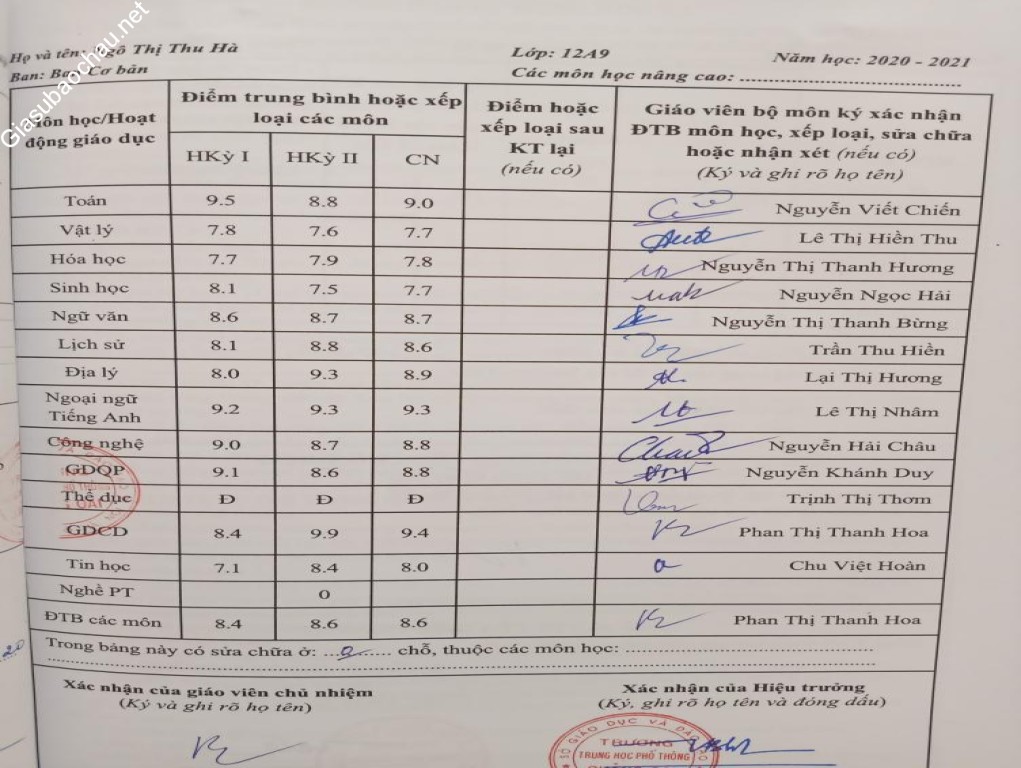 Giasubaochau.net
Họ và tên: Ngô Thị Thu Hà Lớp: 12A9 Năm học: 2020 - 2021
Ban: Ban Cơ bản Các môn học nâng cao:
Môn học/Hoạt động giáo dục
Điểm trung bình hoặc xếp loại các môn
HKỳ I HKỳ II CN
Điểm hoặc xếp loại sau KT lại (nếu có)
Giáo viên bộ môn ký xác nhận
ĐTB môn học, xếp loại, sửa chữa
hoặc nhận xét (nếu có)
(Ký và ghi rõ họ tên)
Toán 9.5 8.8 9.0 Nguyễn Viết Chiến
Vật lý 7.8 7.6 7.7 Lê Thị Hiền Thu
Hóa học 7.7 7.9 7.8 Nguyễn Thị Thanh Hương
Sinh học 8.1 7.5 7.7 Nguyễn Ngọc Hải
Ngữ văn 8.6 8.7 8.7 Nguyễn Thị Thanh Bừng
Lịch sử 8.1 8.8 8.6 Trần Thu Hiền
Địa lý 8.0 9.3 8.9 Lại Thị Hương
Ngoại ngữ
Tiếng Anh 9.2 9.3 9.3 Lê Thị Nhâm
Công nghệ 9.0 8.7 8.8 Nguyễn Hải Châu
GDQP 9.1 8.6 8.8 Nguyễn Khánh Duy
Thể dục Đ Đ Đ Trịnh Thị Thơm
GDCD 8.4 9.9 9.4 Phan Thị Thanh Hoa
Tin học 7.1 8.4 8.0 Chu Việt Hoàn
Nghề PT 0
ĐTB các môn 8.4 8.6 8.6 Phan Thị Thanh Hoa
Trong bảng này có sửa chữa ở: ...0... chỗ, thuộc các môn học:
Xác nhận của giáo viên chủ nhiệm
(Ký và ghi rõ họ tên)
Xác nhận của Hiệu trưởng
(Ký, ghi rõ họ tên và đóng dấu)
SỞ GIÁO DỤC VÀ ĐÀO
TRƯỜNG
TRUNG HỌC PHỔ THÔNG